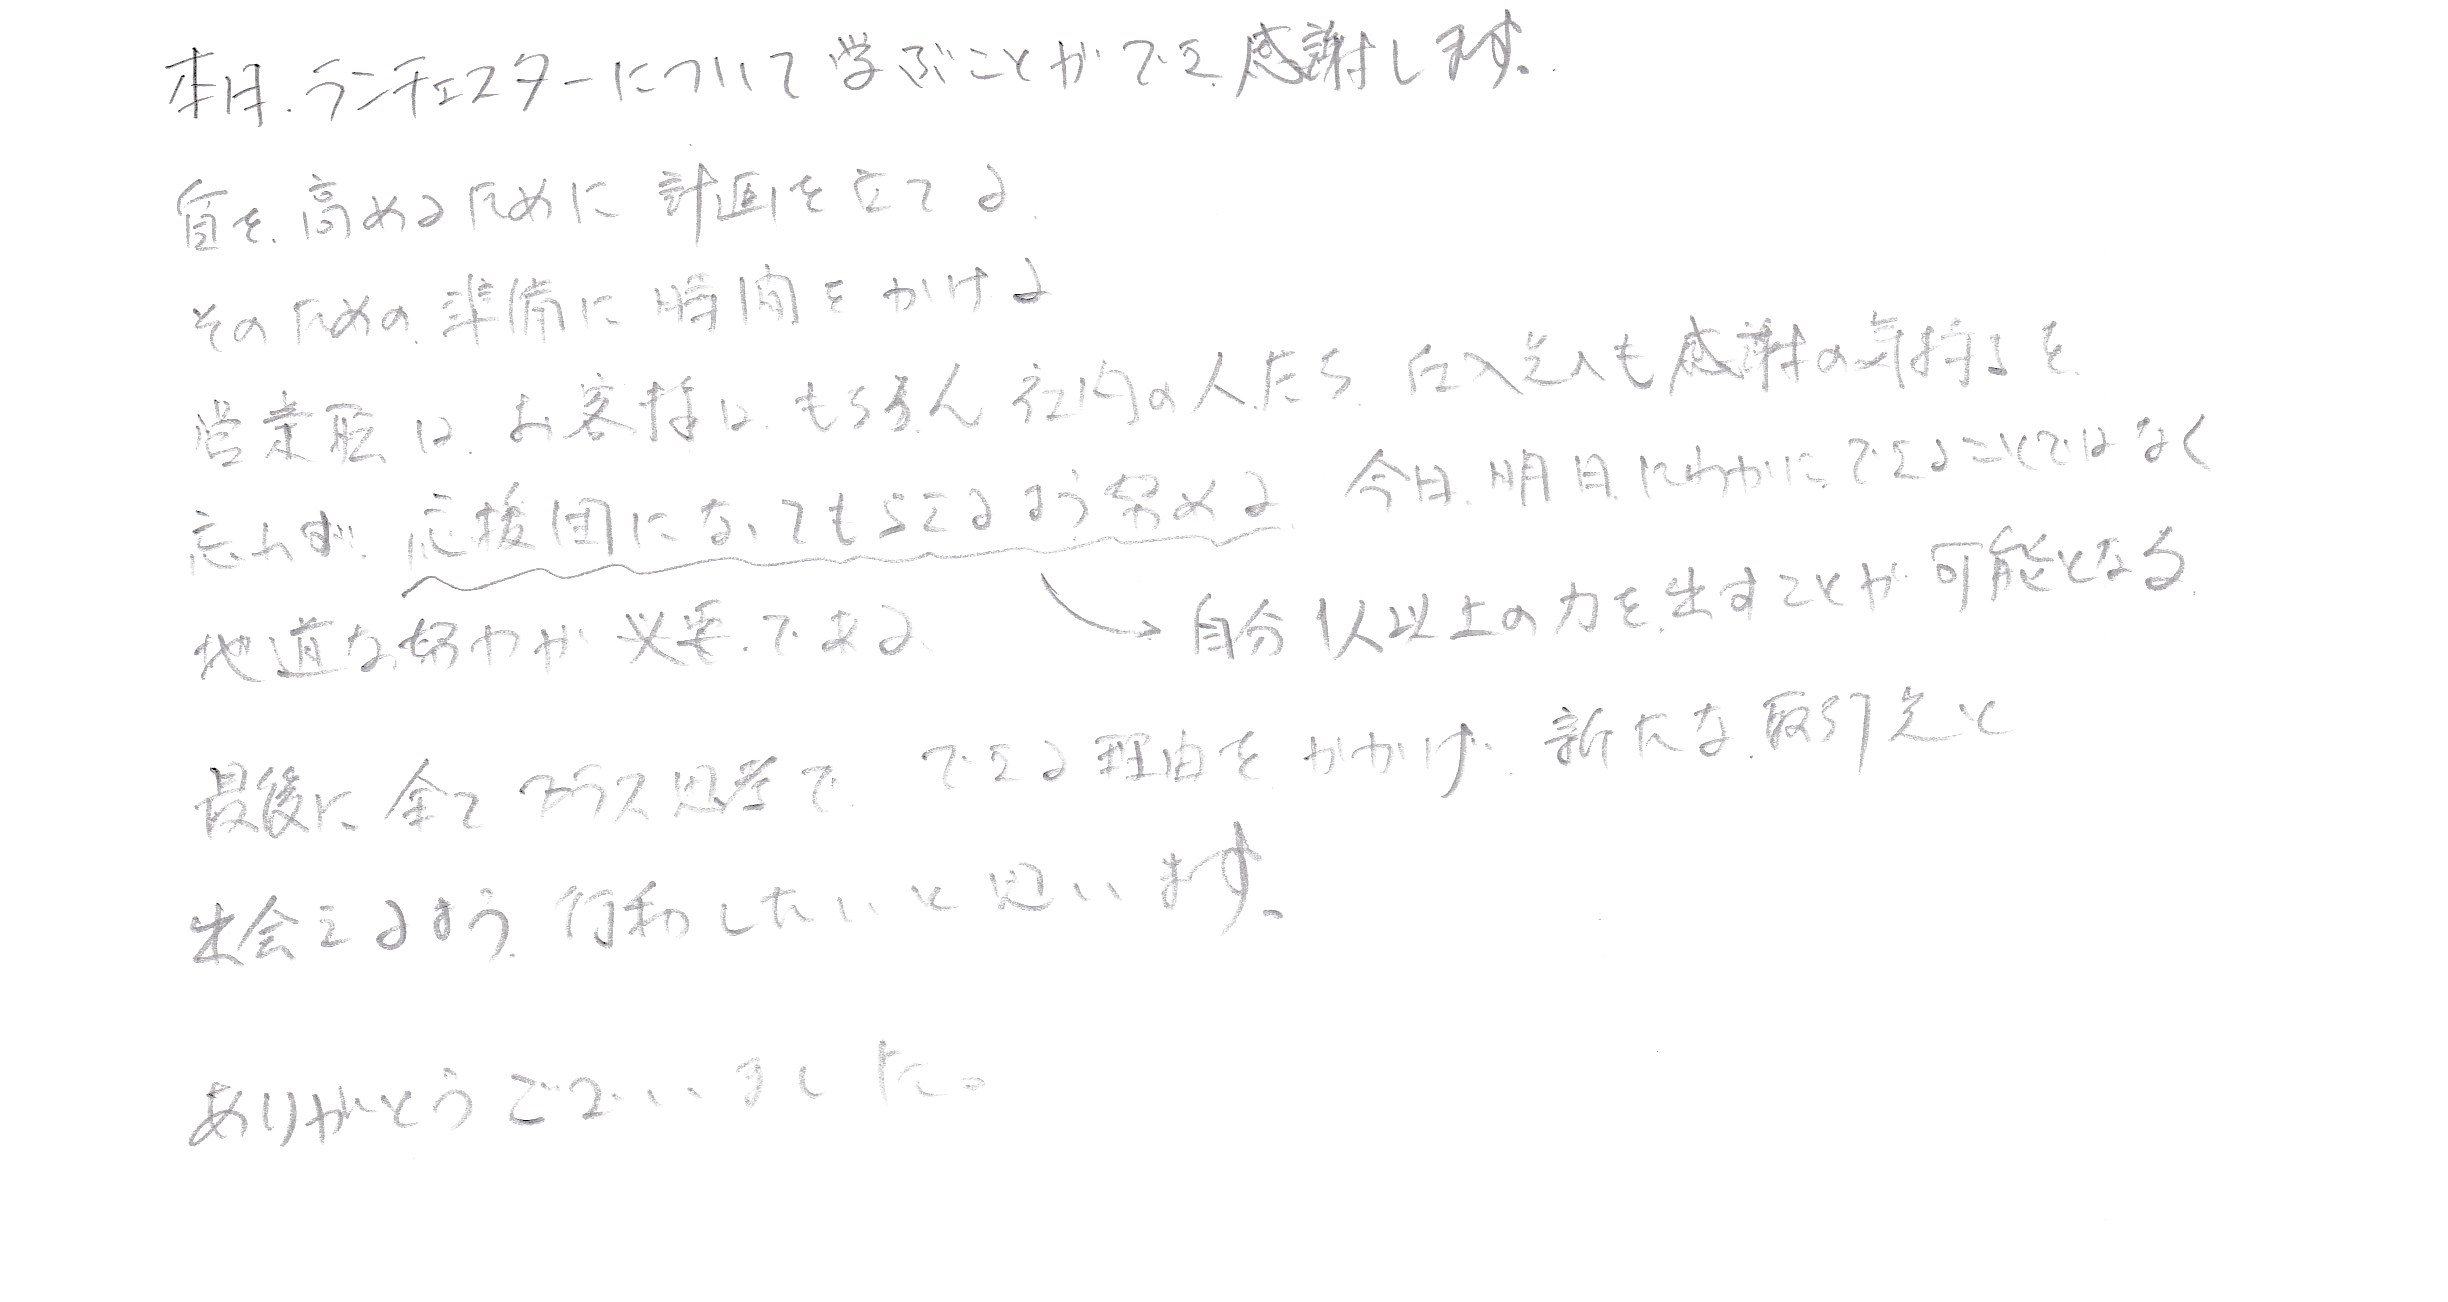 本日、ランチェスターについて学ぶことができ、感謝します。
質を高めるために計画を立てる
そのための準備に時間をかける
営業職はお客様はもちろん社内の人たち、仕入先へも感謝の気持ちを
忘れず、応援団になってもらえるよう努める 今日、明日にわかにできることではなく
地道な努力が必要である
→自分1人以上の力を出すことが可能となる
最後に全てプラス思考で、できる理由をかかげ、新たな取引先と
出会えるよう行動したいと思います。
ありがとうございました。